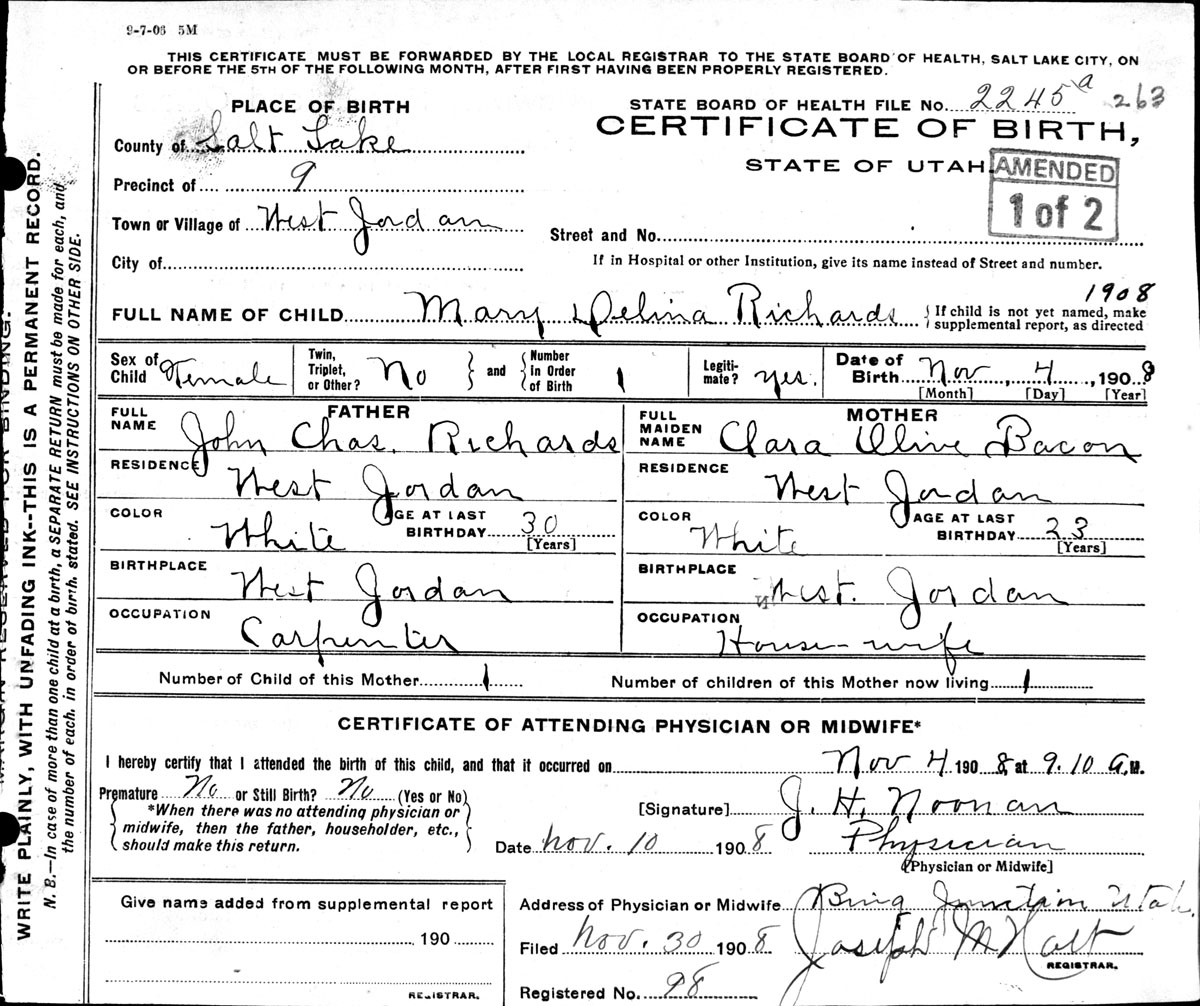 9-7-06 5M
THIS CERTIFICATE MUST BE FORWARDED BY THE LOCAL REGISTRAR TO THE STATE BOARD OF HEALTH, SALT LAKE CITY, ON
OR BEFORE THE 5TH OF THE FOLLOWING MONTH, AFTER FIRST HAVING BEEN PROPERLY REGISTERED.
PLACE OF BIRTH
STATE BOARD OF HEALTH FILE No. 2245 a 263
County of Salt Lake
CERTIFICATE OF BIRTH,
STATE OF UTAH
AMENDED
1 of 2
Precinct of 9
Town or Village of West Jordan
Street and No.
City of
If in Hospital or other Institution, give its name instead of Street and number.
1908
FULL NAME OF CHILD Mary Delina Richards
{ If child is not yet named, make
supplemental report, as directed
Sex of Child Female
Twin, Triplet, or Other? No } and { Number in Order of Birth 1
Legiti-mate? yes.
Date of Birth Nov, 4, 1908
[Month] [Day] [Year]
FATHER
FULL NAME John Chas. Richards
MOTHER
FULL MAIDEN NAME Clara Olive Bacon
RESIDENCE West Jordan
RESIDENCE West Jordan
COLOR White AGE AT LAST BIRTHDAY 30 [Years]
COLOR White AGE AT LAST BIRTHDAY 23 [Years]
BIRTHPLACE West Jordan
BIRTHPLACE West. Jordan
OCCUPATION Carpenter
OCCUPATION House-wife
Number of Child of this Mother 1
Number of children of this Mother now living 1
CERTIFICATE OF ATTENDING PHYSICIAN OR MIDWIFE*
I hereby certify that I attended the birth of this child, and that it occurred on Nov 4 1908, at 9.10 A.M.
Premature No or Still Birth? No (Yes or No)
{ *When there was no attending physician or
midwife, then the father, householder, etc.,
should make this return. }
[Signature] J. H. Noonan
Date Nov. 10 1908
Physician
[Physician or Midwife]
Give name added from supplemental report
190
REGISTRAR.
Address of Physician or Midwife Bing Junction Utah
Filed Nov. 30 1908 Joseph M Holt
REGISTRAR.
Registered No. 98
MARGIN RESERVED FOR BINDING.
WRITE PLAINLY, WITH UNFADING INK--THIS IS A PERMANENT RECORD.
N. B.—In case of more than one child at a birth, a SEPARATE RETURN must be made for each, and
the number of each, in order of birth, stated. SEE INSTRUCTIONS ON OTHER SIDE.